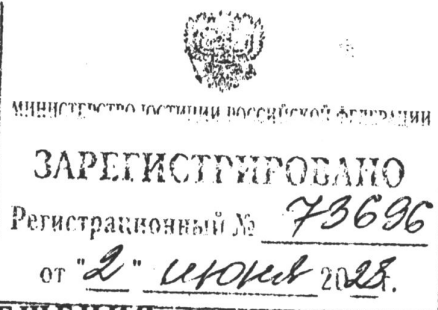 МИНИСТЕРСТВО ЮСТИЦИИ РОССИЙСКОЙ ФЕДЕРАЦИИ
ЗАРЕГИСТРИРОВАНО
Регистрационный № 73696
от "2" июня 2023г.